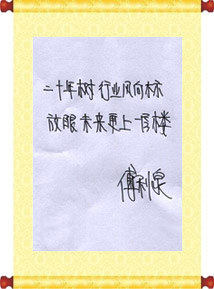 二十年树行业风向标
放眼未来更上一层楼
傅利泉